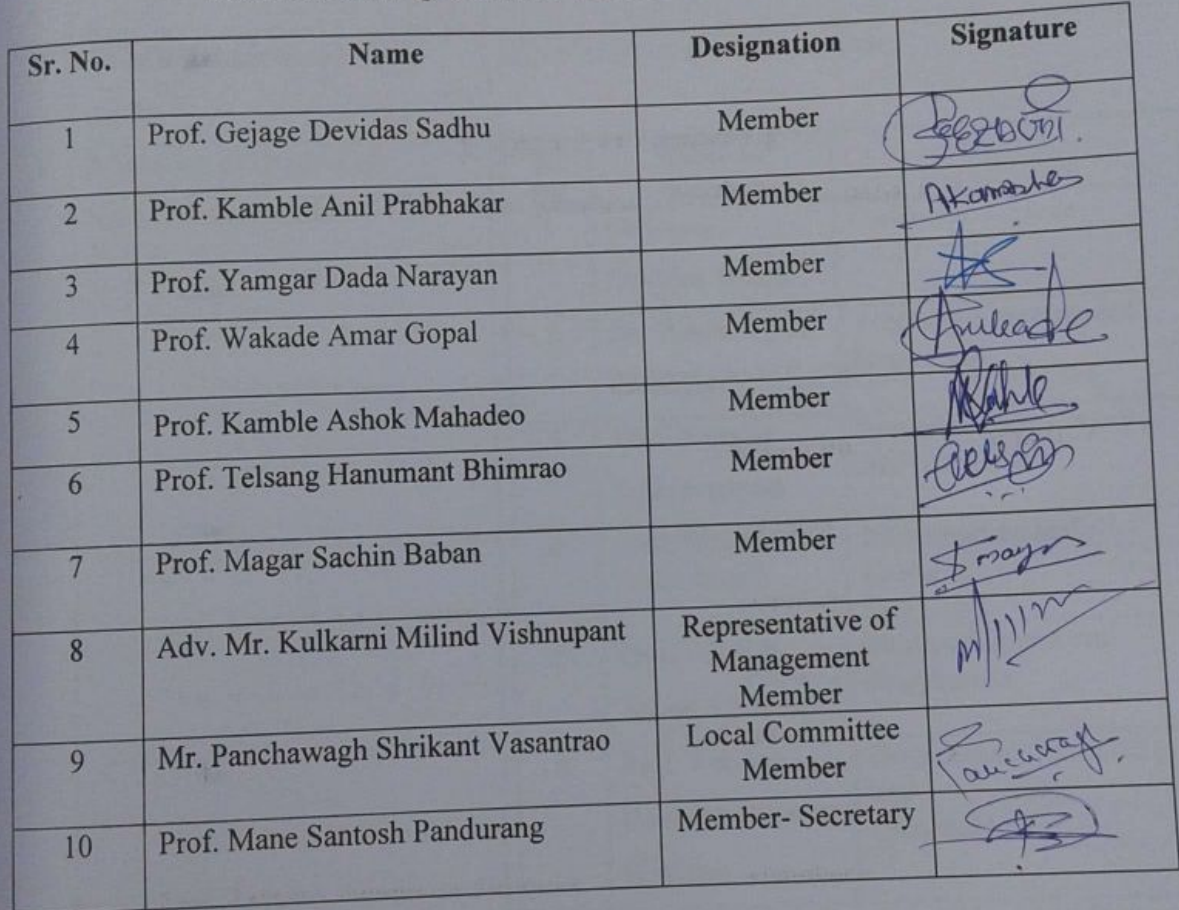 Sr. No. Name Designation Signature
1 Prof. Gejage Devidas Sadhu Member
2 Prof. Kamble Anil Prabhakar Member
3 Prof. Yamgar Dada Narayan Member
4 Prof. Wakade Amar Gopal Member
5 Prof. Kamble Ashok Mahadeo Member
6 Prof. Telsang Hanumant Bhimrao Member
7 Prof. Magar Sachin Baban Member
8 Adv. Mr. Kulkarni Milind Vishnupant Representative of
Management
Member
9 Mr. Panchawagh Shrikant Vasantrao Local Committee
Member
10 Prof. Mane Santosh Pandurang Member- Secretary